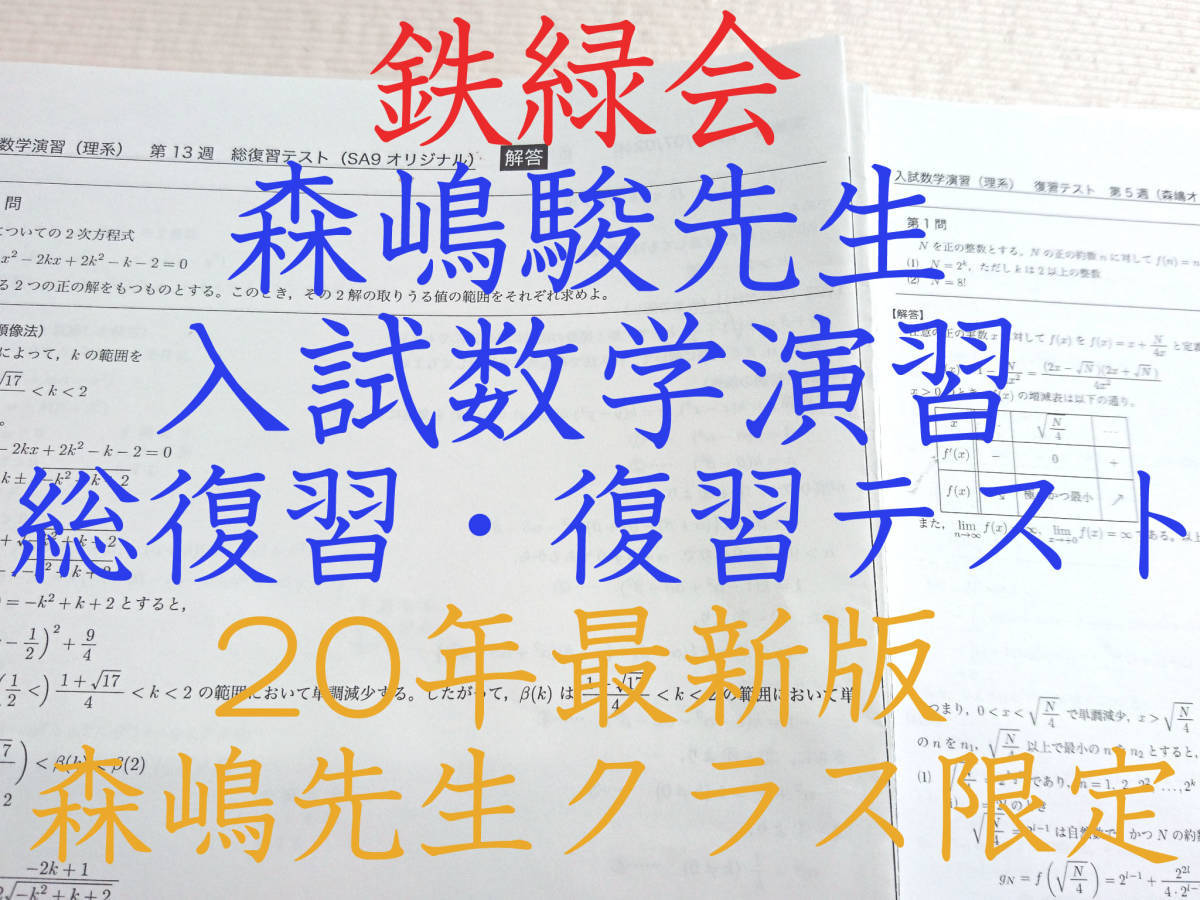 鉄緑会
森嶋駿先生
入試数学演習
総復習・復習テスト
20年最新版
森嶋先生クラス限定
数学演習（理系） 第13週 総復習テスト（SA9 オリジナル） 解答
問
についての2次方程式
x² − 2kx + 2k² − k − 2 = 0
る2つの正の解をもつものとする。このとき，その2解の取りうる値の範囲をそれぞれ求めよ。
によって，kの範囲を
√17 < k < 2
− 2kx + 2k² − k − 2 = 0
= −k² + k + 2 とすると，
1/2)² + 9/4
(1/2 <) (1+√17)/4 < k < 2 の範囲において単調減少する。したがって，β(k) は (1+√17)/4 < k < 2 の範囲において単
< β(k) < β(2)
2
−2k + 1
2√(−k² + k + 2)
入試数学演習（理系） 復習テスト 第5週（森嶋オ
第1問
Nを正の整数とする。Nの正の約数nに対して f(n) = n
(1) N = 2ᵏ，ただしkは2以上の整数
(2) N = 8!
【解答】
対して f(x) を f(x) = x + N/4x と定義
= (2x − √N)(2x + √N)/4x²
の増減表は以下の通り。
x … √(N/4) …
f′(x) − 0 +
f(x) かつ最小 ↗
また，lim n→∞ f(x) = ∞，lim x→+0 f(x) = ∞ である。以上
つまり，0 < x < √(N/4) で単調減少，x > √(N/4)
のnをn₁，√(N/4) 以上で最小のnをn₂とすると，
(1) であり，n = 1, 2, 2², …, 2ᵏ
のとき
√(N/4) = 2ˡ⁻¹ は自然数で，かつNの約数
g_N = f(√(N/4)) = 2ˡ⁻¹ + 2²ˡ/4·2ˡ⁻